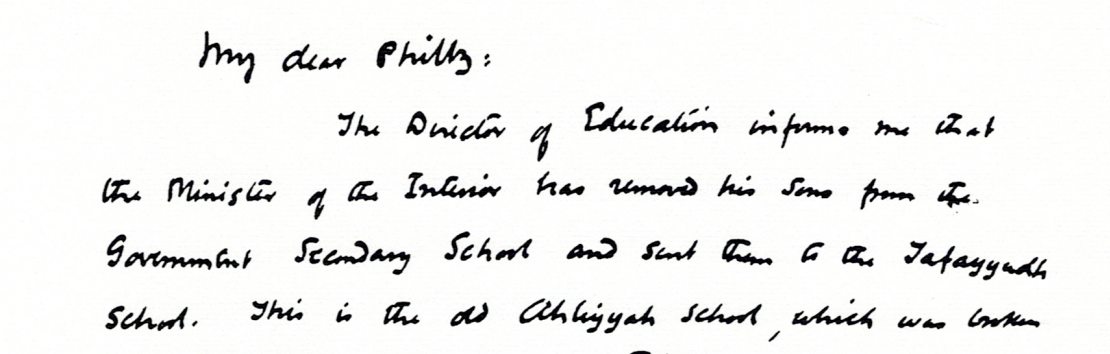 My dear Philby:
The Director of Education informs me that
the Minister of the Interior has removed his sons from the
Government Secondary School and sent them to the Tafayyudh
School. This is the old Ahliyyah School, which was broken